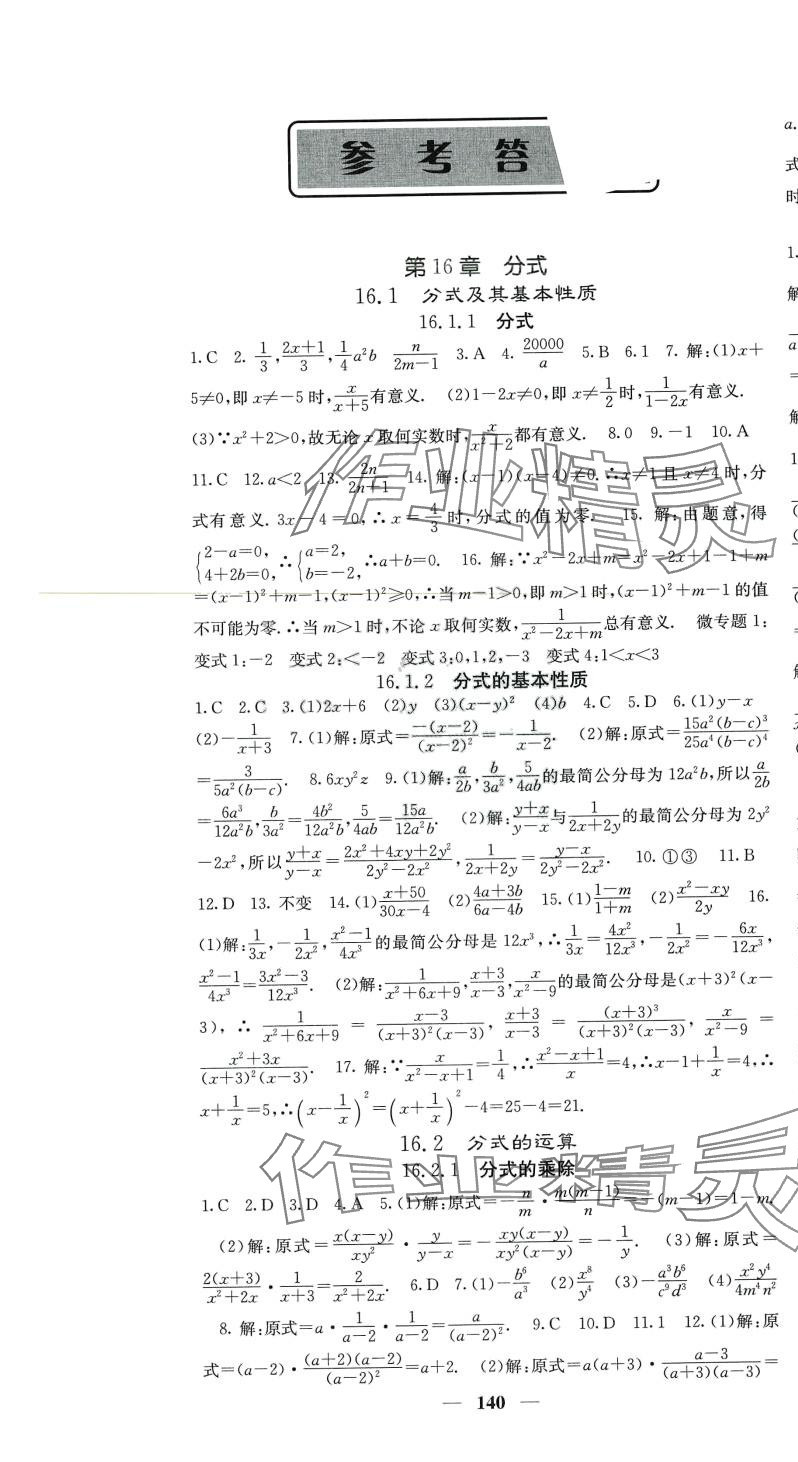 参考答
第16章 分式
16.1 分式及其基本性质
16.1.1 分式
1.C 2. 1/3, (2x+1)/3, 1/4 a²b n/(2m-1) 3.A 4. 20000/a 5.B 6.1 7.解:(1)x+
5≠0,即 x≠-5 时, x/(x+5) 有意义. (2)1-2x≠0,即 x≠1/2 时, 1/(1-2x) 有意义.
(3)∵x²+2>0,故无论 x 取何实数时, x/(x²+2) 都有意义. 8.0 9.-1 10.A
11.C 12.a<2 13. 2n/(2n+1) 14.解:(x-1)(x-4)≠0.∴x≠1 且 x≠4 时,分
式有意义. 3x-4=0,∴x=4/3 时,分式的值为零. 15.解:由题意,得
{2-a=0, 4+2b=0, ∴{a=2, b=-2, ∴a+b=0. 16.解:∵x²-2x+m=x²-2x+1-1+m
=(x-1)²+m-1,(x-1)²≥0,∴当 m-1>0,即 m>1 时,(x-1)²+m-1 的值
不可能为零.∴当 m>1 时,不论 x 取何实数, 1/(x²-2x+m) 总有意义. 微专题1:
变式1:-2 变式2:<-2 变式3:0,1,2,-3 变式4:1<x<3
16.1.2 分式的基本性质
1.C 2.C 3.(1)2x+6 (2)y (3)(x-y)² (4)b 4.C 5.D 6.(1)y-x
(2)-1/(x+3) 7.(1)解:原式=-(x-2)/(x-2)²=-1/(x-2). (2)解:原式=15a²(b-c)³/25a⁴(b-c)⁴
=3/5a²(b-c). 8.6xy²z 9.(1)解: a/2b, b/3a², 5/4ab 的最简公分母为 12a²b,所以 a/2b
=6a³/12a²b, b/3a²=4b²/12a²b, 5/4ab=15a/12a²b. (2)解: (y+x)/(y-x) 与 1/(2x+2y) 的最简公分母为 2y²
-2x²,所以 (y+x)/(y-x)=(2x²+4xy+2y²)/(2y²-2x²), 1/(2x+2y)=(y-x)/(2y²-2x²). 10.①③ 11.B
12.D 13.不变 14.(1)(x+50)/(30x-4) (2)(4a+3b)/(6a-4b) 15.(1)(1-m)/(1+m) (2)(x²-xy)/2y 16.
(1)解: 1/3x, -1/2x², (x²-1)/4x³ 的最简公分母是 12x³,∴1/3x=4x²/12x³, -1/2x²=-6x/12x³,
(x²-1)/4x³=(3x²-3)/12x³. (2)解: 1/(x²+6x+9), (x+3)/(x-3), x/(x²-9) 的最简公分母是(x+3)²(x-
3),∴ 1/(x²+6x+9) = (x-3)/(x+3)²(x-3), (x+3)/(x-3) = (x+3)³/(x+3)²(x-3), x/(x²-9) =
(x²+3x)/(x+3)²(x-3). 17.解:∵x/(x²-x+1)=1/4,∴(x²-x+1)/x=4,∴x-1+1/x=4,∴
x+1/x=5,∴(x-1/x)²=(x+1/x)²-4=25-4=21.
16.2 分式的运算
16.2.1 分式的乘除
1.C 2.D 3.D 4.A 5.(1)解:原式=-n/m·m(m-1)/n=-(m-1)=1-m.
(2)解:原式=x(x-y)/xy²·y/(y-x)=-xy(x-y)/xy²(x-y)=-1/y. (3)解:原式=
2(x+3)/(x²+2x)·1/(x+3)=2/(x²+2x). 6.D 7.(1)-b⁶/a³ (2)x⁸/y⁴ (3)-a³b⁶/c⁹d³ (4)x²y⁴/4m⁴n²
8.解:原式=a·1/(a-2)·1/(a-2)=a/(a-2)². 9.C 10.D 11.1 12.(1)解:原
式=(a-2)·(a+2)(a-2)/(a-2)²=a+2. (2)解:原式=a(a+3)·(a-3)/(a+3)(a-3)=
— 140 —
a.
式
时
1.
解
a
=
解
作业精灵
作业精灵